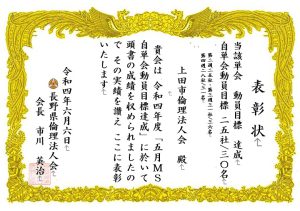 表彰状
当該単会 動員目標 達成
自単会動員目標 二五社、三〇名
上田市倫理法人会 殿
貴会は 令和四年度「五月MS
自単会動員目標達成」に於いて
頭書の成績を収められましたの
で その実績を讃え ここに表彰
いたします
令和四年六月六日
長野県倫理法人会
会長 市川 英治